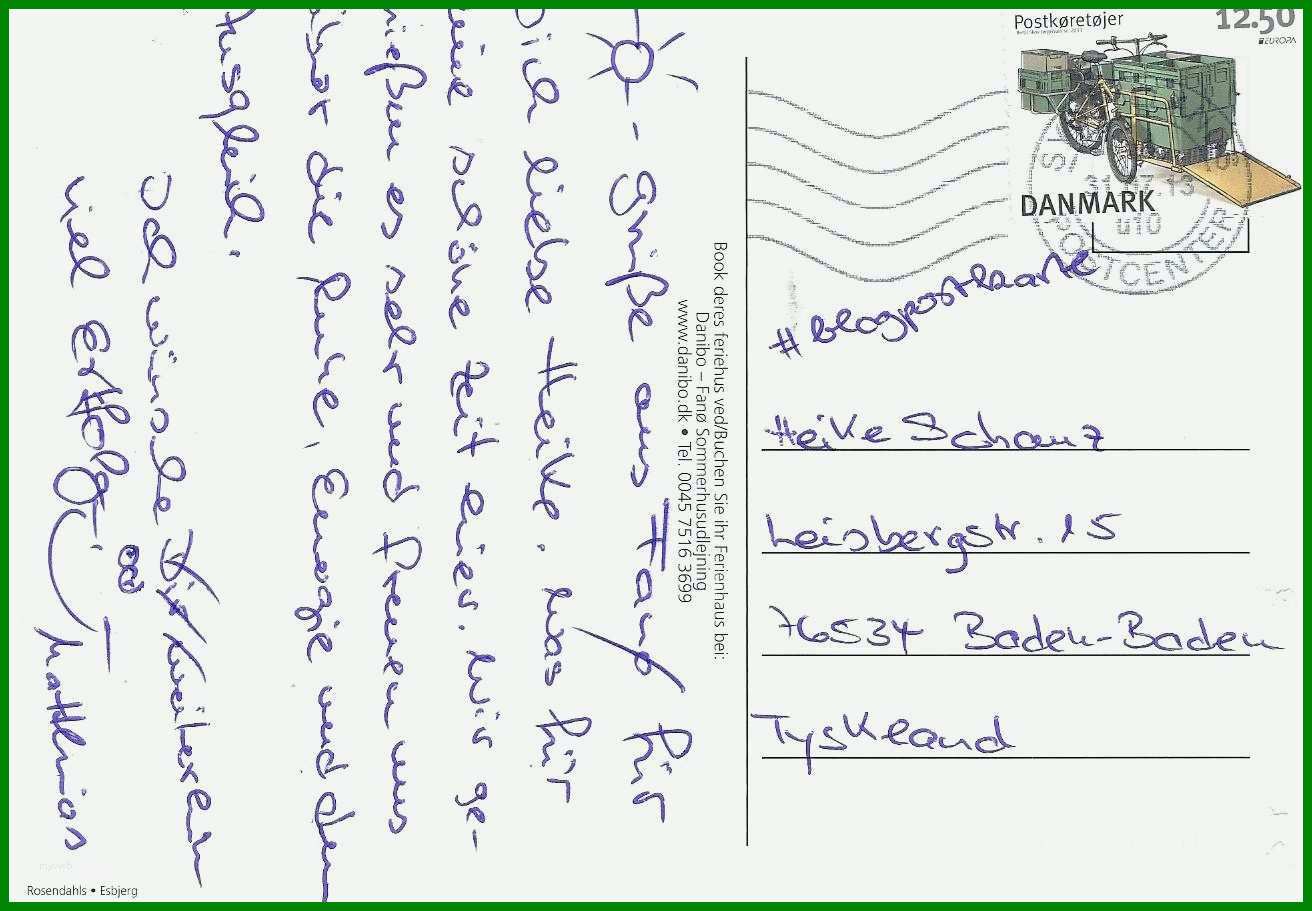 Postkøretøjer
12.50
EUROPA
DANMARK
31.07.13
u10
POSTCENTER
- Grüße aus Fanø für
Dich liebe Heike. Was für
eine schöne Zeit hier. Wir ge-
nießen es sehr und freuen uns
die Ruhe, Energie und den
Ausgleich.
Ich wünsche Dir
viel Erfolg!
Matthias
Book deres feriehus ved/Buchen Sie ihr Ferienhaus bei:
Danibo – Fanø Sommerhusudlejning
www.danibo.dk • Tel. 0045 7516 3699
#blogpostkarte
Heike Schanz
Leisbergstr. 15
76534 Baden-Baden
Tyskland
Rosendahls • Esbjerg